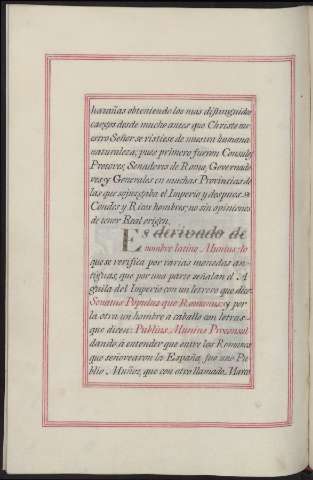 hazañas obteniendo los mas distinguidos
cargos desde mucho antes que Christo nu-
estro Señor se vistiese de nuestra humana
naturaleza; pues primero fueron Consules
Pretores, Senadores de Roma, Governado
res, y Generales en muchas Provincias de
las que sojuzgaba el Imperio y despues
Condes y Ricos hombres, no sin opiniones
de tener Real origen.
Es derivado de
nombre latino Munius: lo
que se verifica por varias monedas an-
tiguas, que por una parte señalan el A
guila del Imperio con un letrero que dice
Senatus Populus que Romanus: y por
la otra un hombre a caballo con letras
que dicen: Publius Munius Proconsul
dando á entender que entre los Romanos
que señorearon la España, fue uno Pu-
blio Muñoz, que con otro llamado Marco